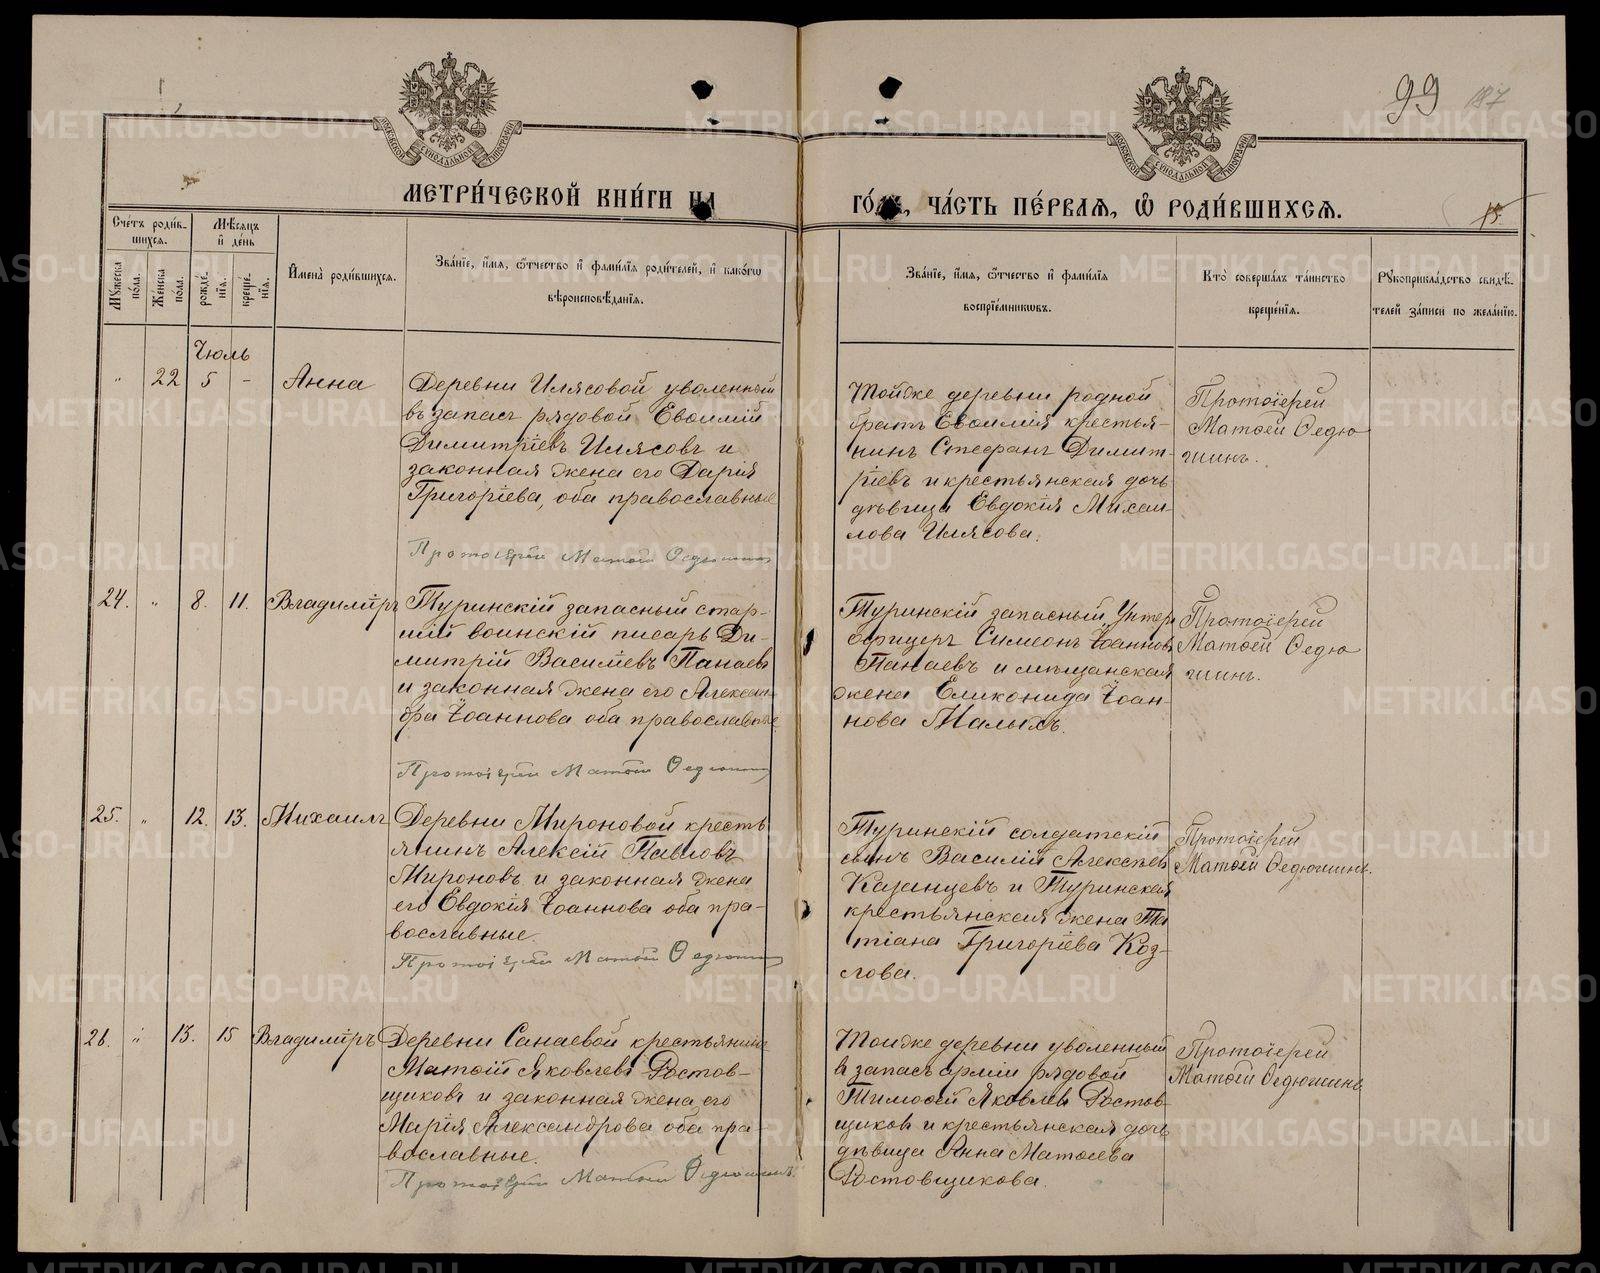 99 187
МЕТРИ́ЧЕСКОЙ КНИ́ГИ НА
ГО́ДЪ, ЧА́СТЬ ПЕ́РВАЯ, Ѡ РОДИ́ВШИХСЯ.
15.
Сче́тъ роди́в-
шихся.
Мꙋ́жеска по́ла.
Же́нска по́ла.
Мѣ́сяцъ
и҆ де́нь
рожде́-
нїя.
креще́-
нїя.
И҆мена̀ роди́вшихся.
Зва́нїе, и҆́мя, ѻ҆́тчество и҆ фами́лїя роди́телей, и҆ како́гѡ
вѣроисповѣ́данїя.
Зва́нїе, и҆́мя, ѻ҆́тчество и҆ фами́лїя
воспрїе́мникѡвъ.
Кто̀ соверша́лъ та́инство
креще́нїя.
Рꙋкоприкла́дство свидѣ́-
телей за́писи по жела́нїю.
Іюль
" 22 5 - Анна
Деревни Илясовой уволенный
въ запасъ рядовой Евѳимій
Димитріевъ Илясовъ и
законная жена его Дарія
Григоріева, оба православные
Протоіерей Матѳій Ѳедюшинъ
Тойже деревни родной
братъ Евѳимія крестья-
нинъ Стефанъ Димит-
ріевъ и крестьянская дочь
дѣвица Евдокія Михаи-
лова Илясова.
Протоіерей
Матѳей Ѳедю
шинъ.
24. " 8. 11. Владиміръ
Туринскій запасный стар-
шій воинскій писарь Ди-
митрій Василіевъ Панаевъ
и законная жена его Алексан-
дра Іоаннова оба православные.
Протоіерей Матѳій Ѳедюшинъ
Туринскій запасный Унтеръ
офицеръ Симеонъ Іоанновъ
Панаевъ и мѣщанская
жена Еликонида Іоан-
нова Малыхъ.
Протоіерей
Матѳей Ѳедю
шинъ.
25. " 12. 13. Михаилъ
Деревни Мироновой кресть
янинъ Алексій Павловъ
Мироновъ и законная жена
его Евдокія Іоаннова оба пра-
вославные.
Протоіерей Матѳій Ѳедюшинъ
Туринскій солдатскій
сынъ Василій Алексѣевъ
Казанцевъ и Туринская
крестьянская жена Та
тіана Григоріева Коз-
лова.
Протоіерей
Матѳей Ѳедюшинъ.
26. " 13. 15 Владиміръ
Деревни Санаевой крестьянинъ
Матѳій Яковлевъ Ростов-
щиковъ и законная жена его
Марія Александрова оба пра-
вославные.
Протоіерей Матѳій Ѳедюшинъ.
Тойже деревни уволенный
въ запасъ арміи рядовой
Тимоѳей Яковлевъ Ростов-
щиковъ и крестьянская дочь
дѣвица Анна Матѳіева
Ростовщикова.
Протоіерей
Матѳей Ѳедюшинъ